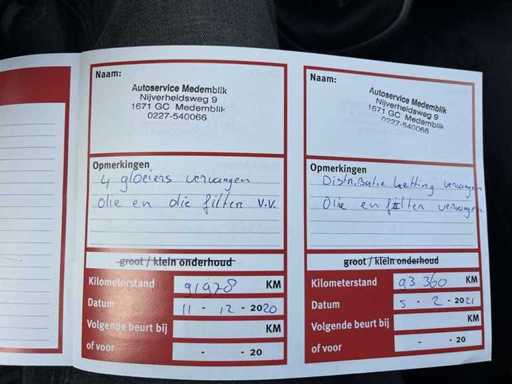 Naam:
Autoservice Medemblik
Nijverheidsweg 9
1671 GC Medemblik
0227-540066
Opmerkingen
4 gloeiers vervangen
olie en olie filter v.v.
groot / klein onderhoud
Kilometerstand 91978 KM
Datum 11 - 12 - 2020
Volgende beurt bij KM
of voor - - 20
Naam:
Autoservice Medemblik
Nijverheidsweg 9
1671 GC Medemblik
0227-540066
Opmerkingen
Distributie ketting vervangen
Olie en filter vervangen
groot / klein onderhoud
Kilometerstand 93360 KM
Datum 5 - 2 - 2021
Volgende beurt bij KM
of voor - - 20